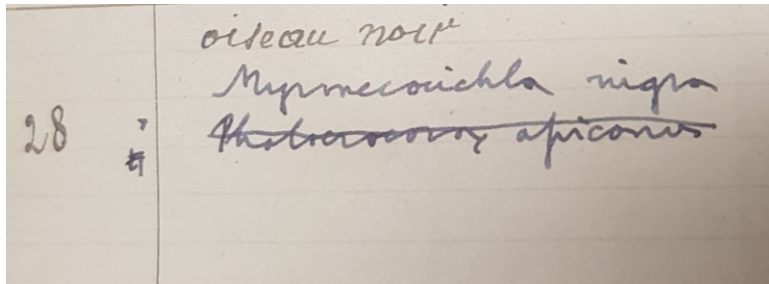 oiseau noir
Myrmecocichla nigra
28 Phalacrocorax africanus